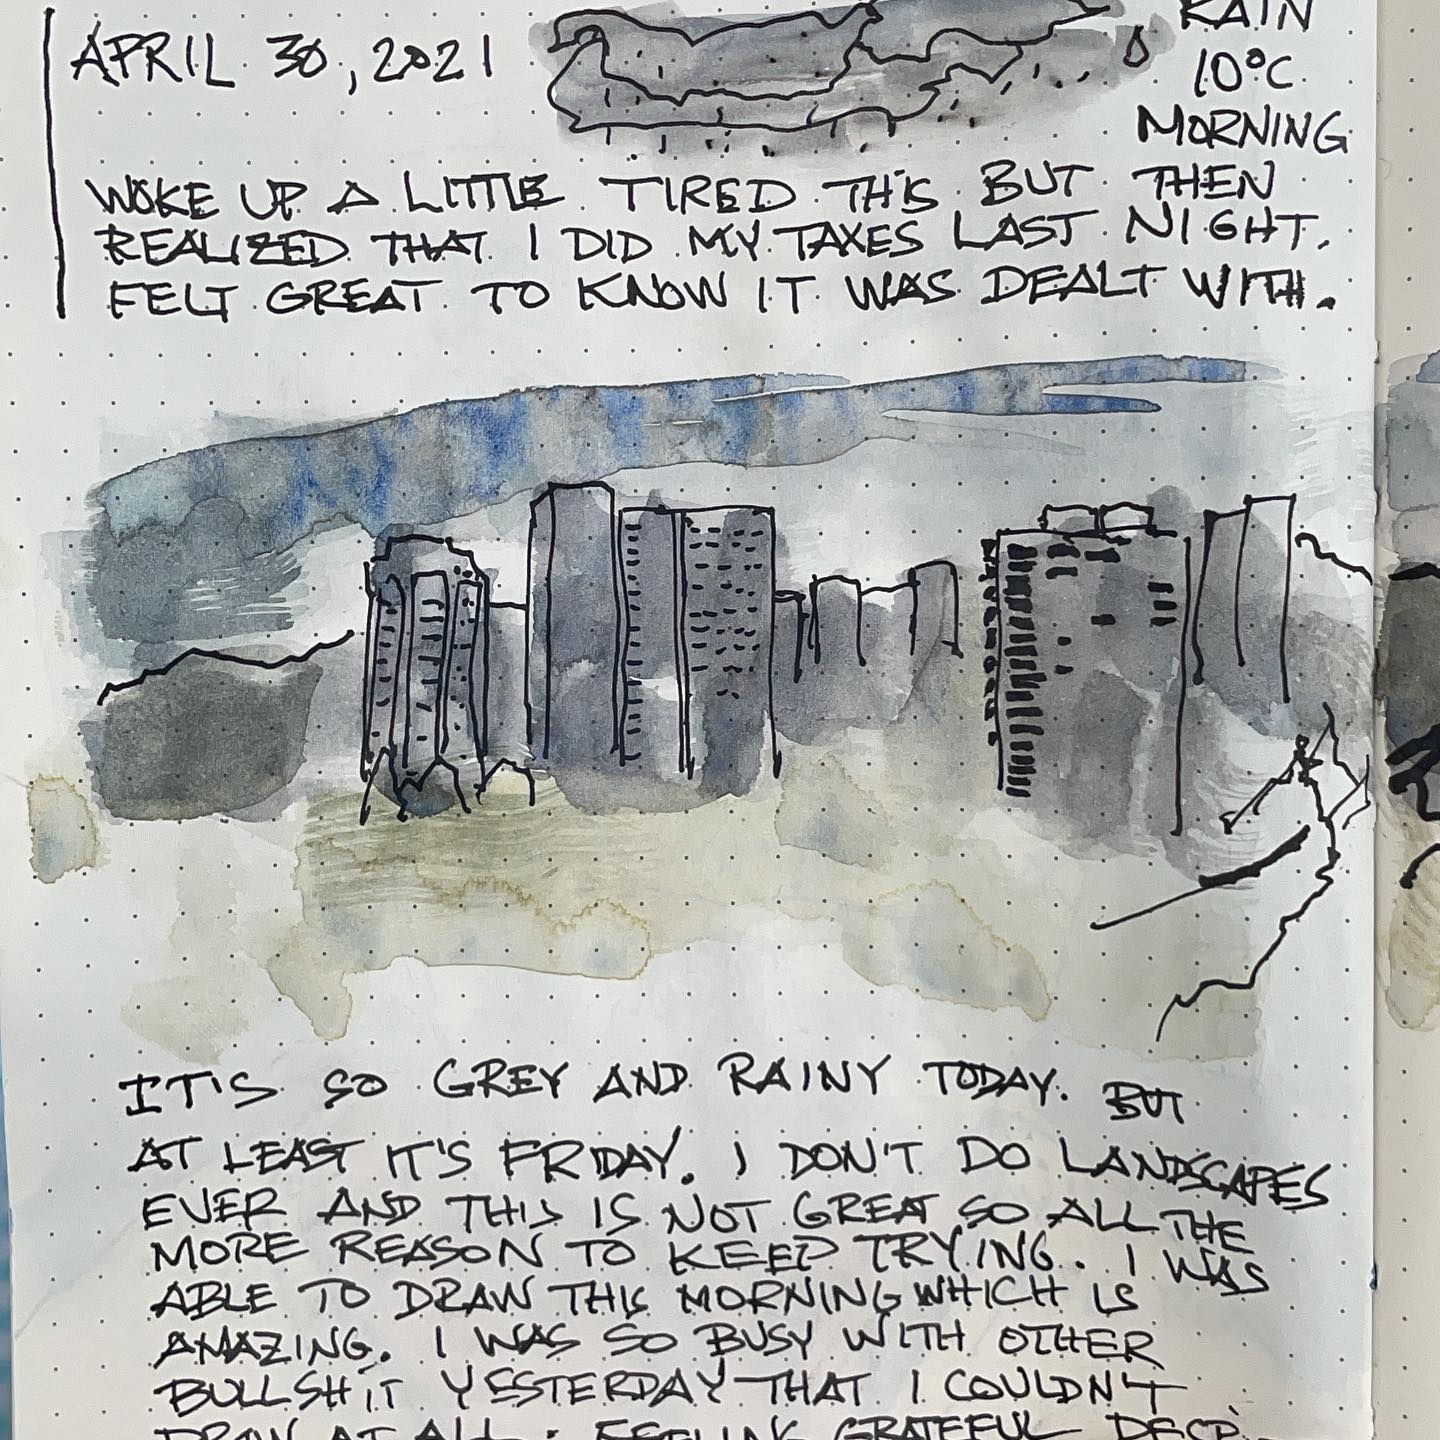 APRIL 30, 2021
RAIN
10°C
MORNING
WOKE UP A LITTLE TIRED THIS BUT THEN
REALIZED THAT I DID MY TAXES LAST NIGHT.
FELT GREAT TO KNOW IT WAS DEALT WITH.
IT'S SO GREY AND RAINY TODAY. BUT
AT LEAST IT'S FRIDAY. I DON'T DO LANDSCAPES
EVER AND THIS IS NOT GREAT SO ALL THE
MORE REASON TO KEEP TRYING. I WAS
ABLE TO DRAW THIS MORNING WHICH IS
AMAZING. I WAS SO BUSY WITH OTHER
BULLSHIT YESTERDAY THAT I COULDN'T
DRAW AT ALL. FEELING GRATEFUL